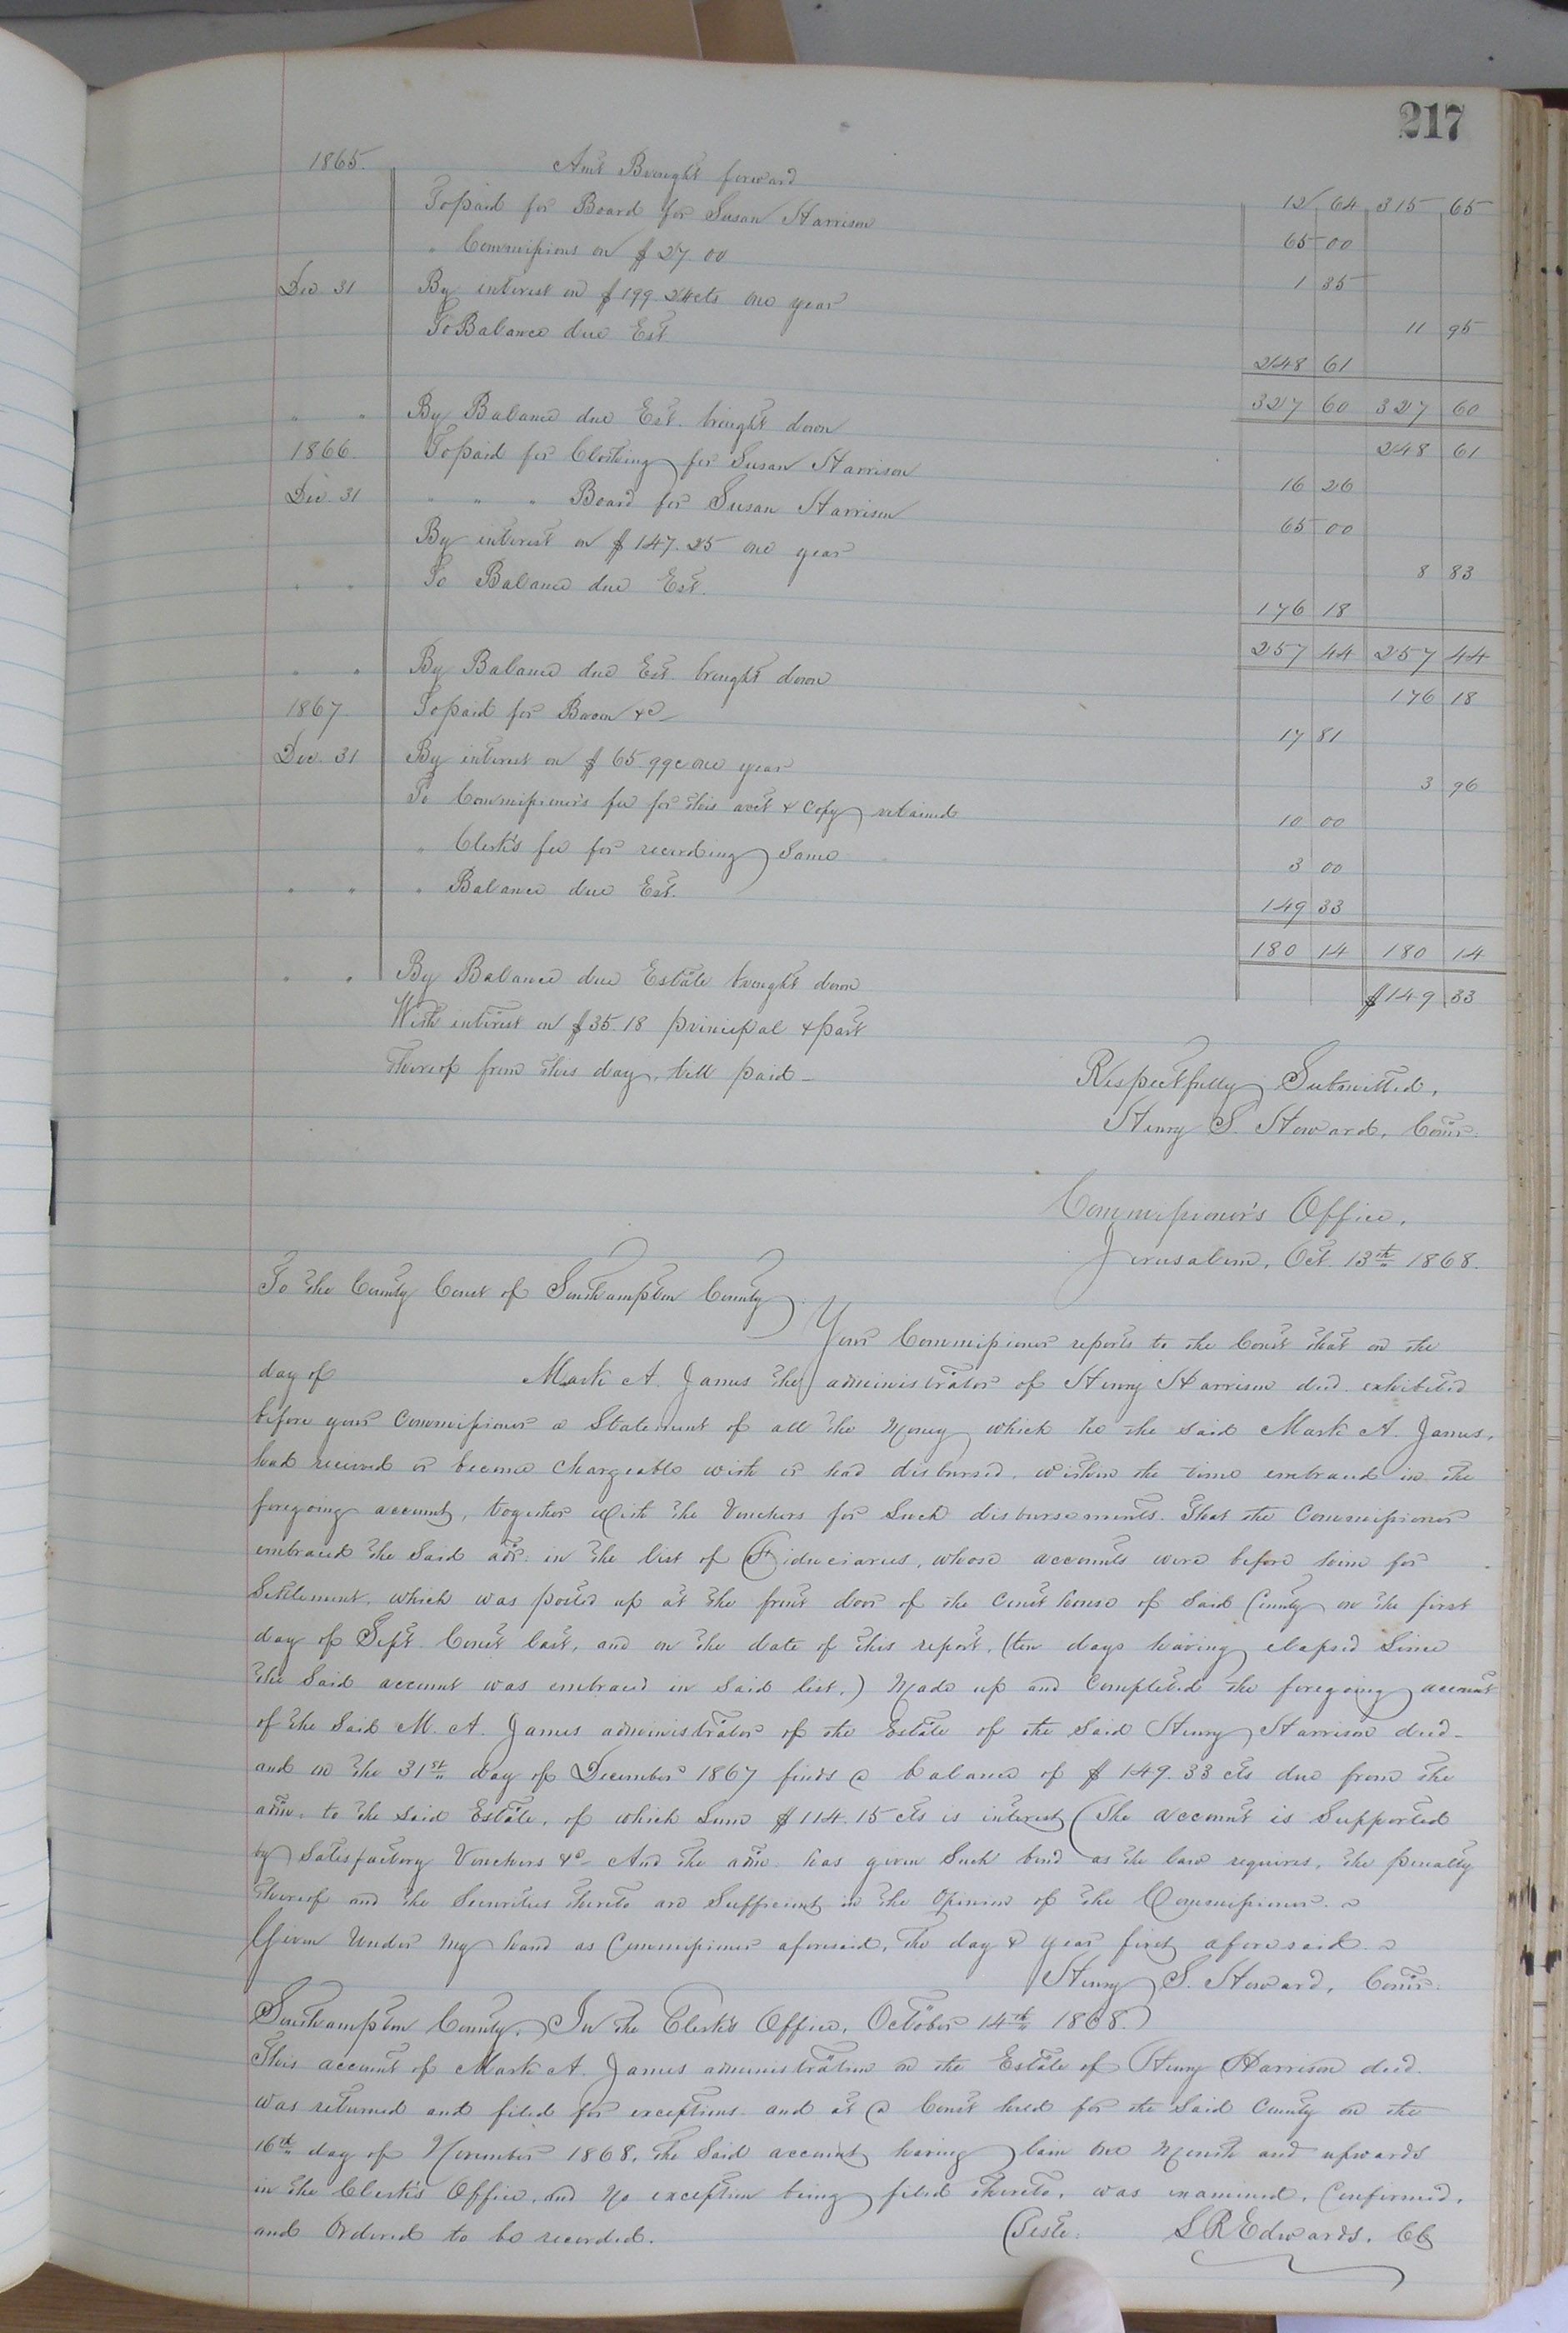 217
1865. Amt Brought forward 12 64 315 65
To paid for Board for Susan Harrison 65 00
" Commissions on $27.00 1 35
Dec 31 By interest on $199 24cts one year 11 95
To Balance due Est. 248 61
327 60 327 60
" " By Balance due Est. brought down 248 61
1866. To paid for Clothing for Susan Harrison 16 26
Dec 31 " " " Board for Susan Harrison 65 00
By interest on $147.25 one year 8 83
" " To Balance due Est. 176 18
257 44 257 44
" " By Balance due Est. brought down 176 18
1867. To paid for Bacon &c 17 81
Dec. 31 By interest on $65.99c one year 3 96
To Commissioner's fee for this acct & Copy retained 10 00
" Clerk's fee for recording Same 3 00
" " " Balance due Est. 149 33
180 14 180 14
" " By Balance due Estate brought down $149 33
With interest on $35.18 principal & part
thereof from this day, till paid_
Respectfully Submitted,
Henry S. Howard, Comr.
Commissioner's Office,
Jerusalem, Oct. 13th 1868.
To the County Court of Southampton County.
Your Commissioner reports to the Court that on the
day of Mark A. James the administrator of Henry Harrison decd. exhibited
before your Commissioner a Statement of all the Money which he the said Mark A. James,
had received or become chargeable with or had disbursed, within the time embraced in the
foregoing account, together with the Vouchers for Such disbursements. That the Commissioner
embraced the Said adr. in the list of Fiduciaries, whose accounts were before him for
Settlement, which was posted up at the front door of the Court house of Said County on the first
day of Sept. Court last, and on the date of this report, (ten days having elapsed Since
the Said account was embraced in Said list.) Made up and Completed the foregoing account
of the Said M. A. James administrator of the Estate of the Said Henry Harrison decd_
and on the 31st day of December 1867 finds a balance of $149.33 cts due from the
adm. to the said Estate, of which Sum $114.15 cts is interest. The account is Supported
by Satisfactory Vouchers &c_ And the adm. has given Such bond as the law requires, the penalty
thereof and the Securities thereto are Sufficient in the Opinion of the Commissioner.
Given Under My hand as Commissioner aforesaid, the day & year first aforesaid.
Henry S. Howard, Comr.
Southampton County. In the Clerk's Office, October 14th 1868.
This account of Mark A. James administration on the Estate of Henry Harrison decd.
was returned and filed for exceptions. and at a Court held for the Said County on the
16th day of November 1868, the Said account having lain one Month and upwards
in the Clerk's Office, and No exception being filed thereto, was examined, Confirmed,
and Ordered to be recorded.
Teste: L R Edwards, CC